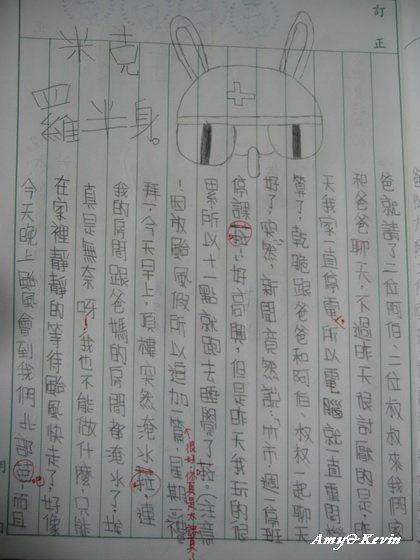 訂正
米克
羅半身。
爸就請了二位阿伯,二位叔叔來我們家
和爸爸聊天,不過昨天很討厭的是,昨
天我家一直停電,所以電腦就一直重開機
算了!乾脆跟爸爸和阿伯、叔叔一起聊天
好了,突然,新聞竟然說:竹市,週一停班
停課啦!好高興,但是昨天我玩的很
累所以十一點就跑去睡覺了啦。(注意
!因放颱風假所以追加一篇,星期
很好!你真是太認真
拜,今天早上,頂樓突然淹水菈,連
我的房間跟爸媽的房間都淹水了!唉
真是無奈呀!我也不能做什麼,只能
在家裡靜靜的等待颱風快走了,好像
今天晚上颱風會到我們北部 吧 而且
Amy@Kevin